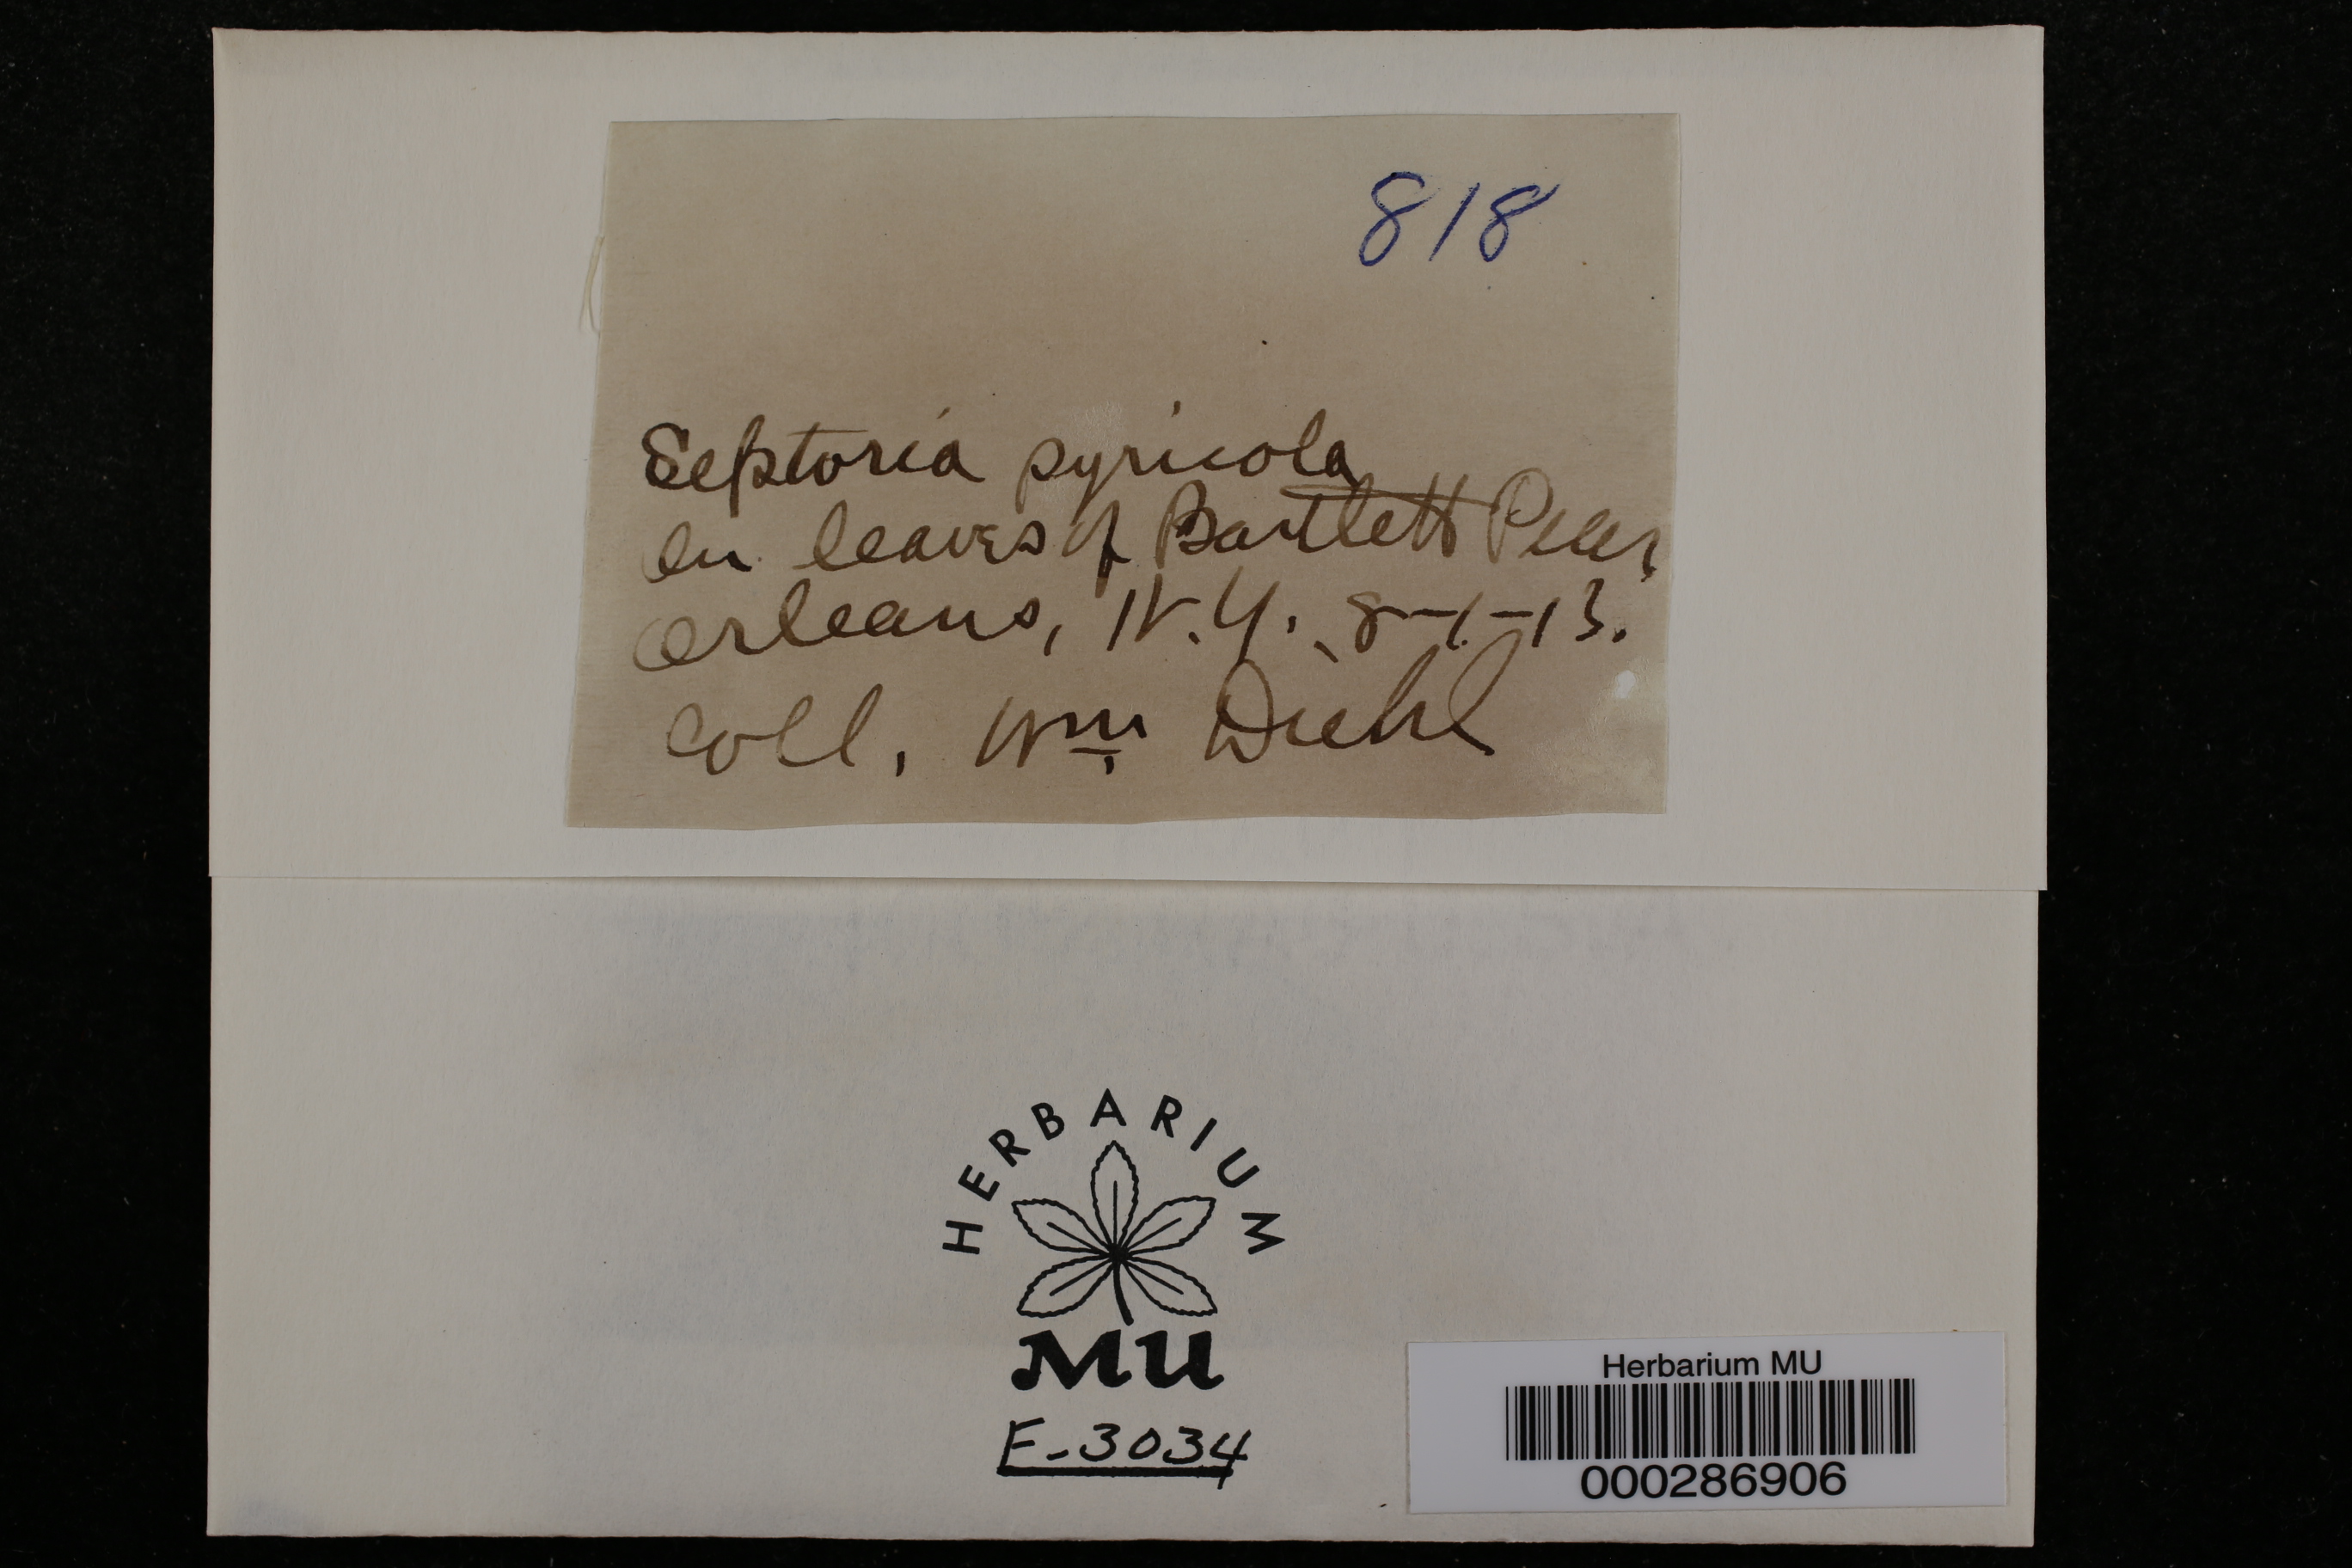 818
Septoria pyricola
on leaves of Bartlett Pear
Orleans, N.Y. 8-1-13.
Coll. Wm. Diehl
HERBARIUM
MU
F-3034
Herbarium MU
000286906